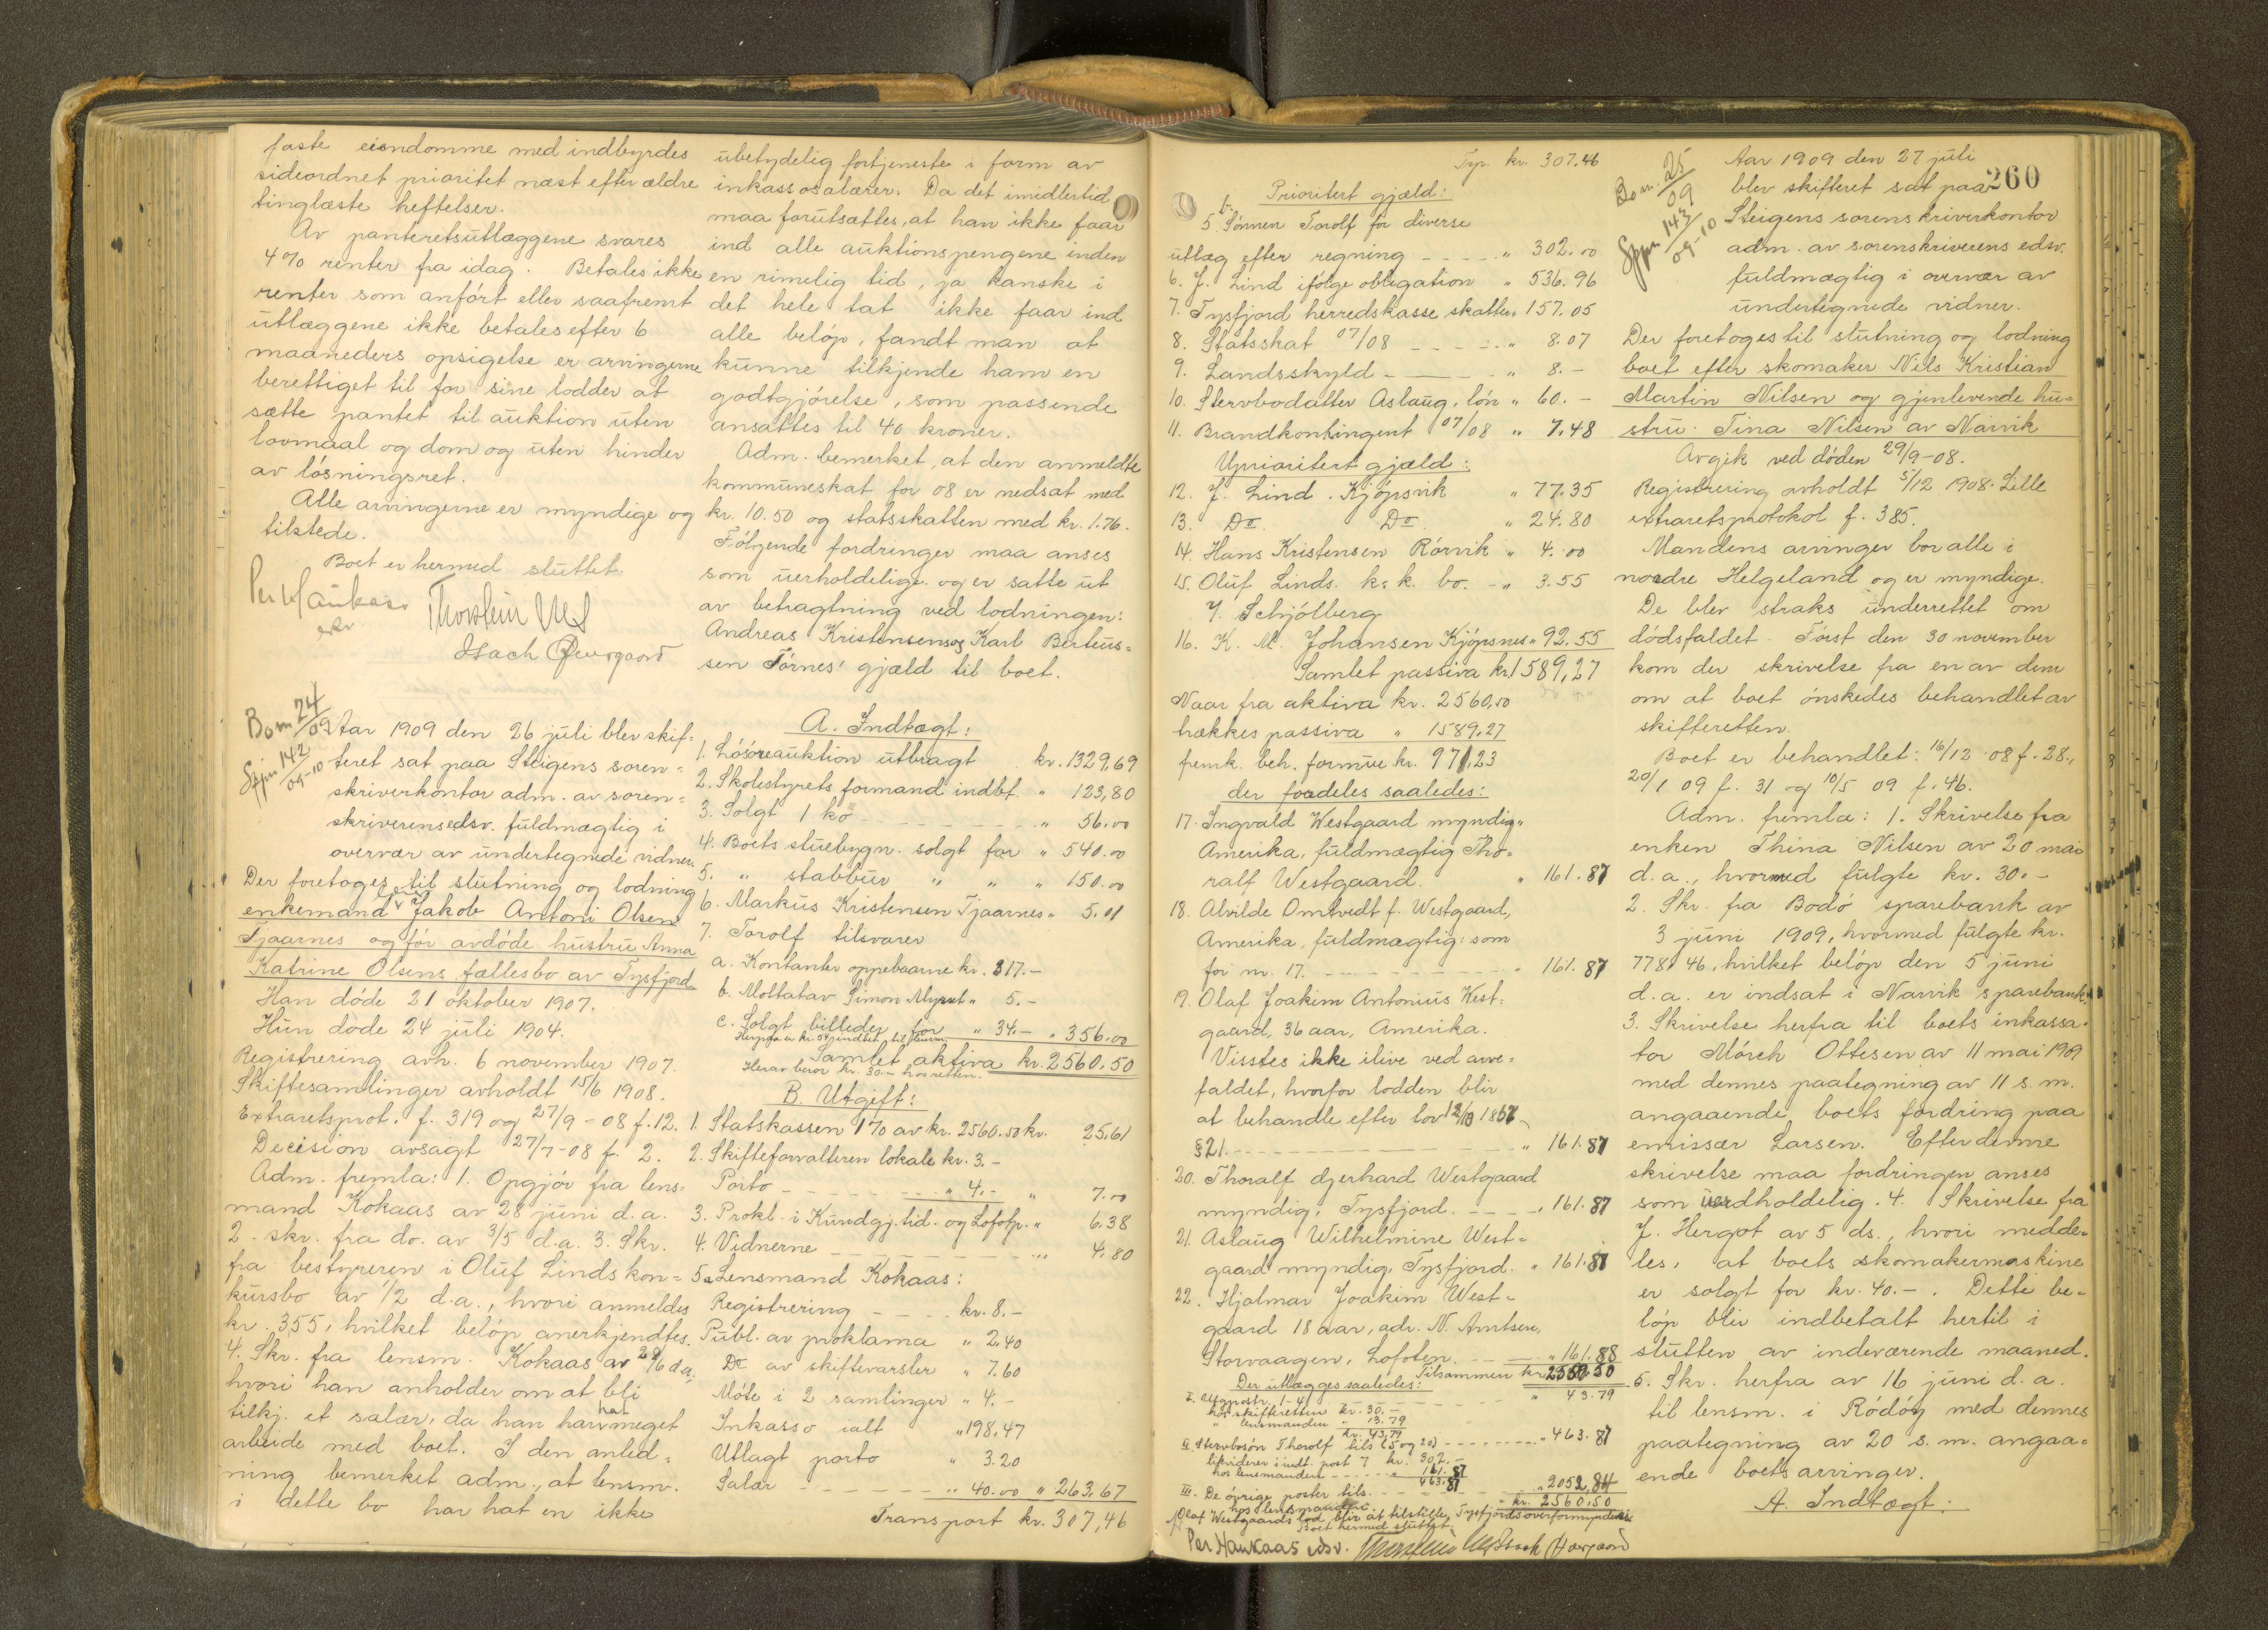 faste eiendomme med indbyrdes
sideordnet prioritet næst efter ældre
tinglæste heftelser.
Av panteretsutlæggene svares
4% renter fra idag. Betales ikke
renter som anført eller saafremt
utlæggene ikke betales efter 6
maaneders opsigelse er arvingerne
berettiget til for sine lodder at
sætte pantet til auktion uten
lovmaal og dom og uten hinder
av løsningsret.
Alle arvingerne er myndige og
tilstede.
Boet er hermed sluttet.
Per Haukaas
edsv.
Thorstein
Isach
Bom 24/09
Sjpr 142/09-10
Aar 1909 den 26 juli blev skif=
teret sat paa Steigens soren=
skriverkontor adm. av soren=
skriverens edsv. fuldmægtig i
overvær av undertegnede vidner.
Der foretoges til slutning og lodning
enkemand Jakob Antoni Olsen
Tjaarnes og før avdøde hustru Anna
Katrine Olsens fællesbo av Tysfjord
Han døde 21 oktober 1907.
Hun døde 24 juli 1904.
Registrering avh. 6 november 1907.
Skiftesamlinger avholdt 15/6 1908.
Extraretsprot. f. 319 og 27/9-08 f. 12.
Decision avsagt 27/7-08 f. 2.
Adm. fremla: 1. Opgjør fra lens=
mand Kokaas av 28 juni d.a.
2. skr. fra do. av 3/5 d.a. 3. Skr.
fra bestyreren i Oluf Linds kon=
kursbo av 1/2 d.a., hvori anmeldes
kr. 355, hvilket beløp anerkjendtes.
4. Skr. fra lensm. Kokaas av 28/6 d.a.,
hvori han anholder om at bli
tilkj. et salær, da han har hat meget
arbeide med boet. I den anled=
ning bemerket adm., at lensm.
i dette bo har hat en ikke
ubetydelig fortjeneste i form av
inkassosalærer. Da det imidlertid
maa forutsættes, at han ikke faar
ind alle auktionspengene inden
en rimelig tid, ja kanske i
det hele tat ikke faar ind
alle beløp, fandt man at
kunne tilkjende ham en
godtgjørelse, som passende
ansattes til 40 kroner.
Adm. bemerket, at den anmeldte
kommuneskat for 08 er nedsat med
kr. 10.50 og statsskatten med kr. 1.76.
Følgende fordringer maa anses
som uerholdelige og er satte ut
av betragtning ved lodningen:
Andreas Kristensens og Karl Berteus=
sen Tørnes' gjæld til boet.
A. Indtægt:
1. Løsøreauktion utbragt kr. 1329,69
2. Skolestyrets formand indbt. " 123,80
3. Solgt 1 ko " 56.00
4. Boets stuebygn. solgt for " 540.00
5. " stabbur " " " 150.00
6. Markus Kristensen Tjaarnes " 5.01
7. Torolf tilsvarer
a. Kontanter oppebaarne kr. 317.-
b. Mottatav Simon Myrset " 5.-
c. Solgt billeder for " 34.- " 356.00
Samlet aktiva kr. 2560.50
Herav beror kr. 30.- hos retten.
B. Utgift:
1. Statskassen 1% av kr. 2560.50 kr. 25,61
2. Skifteforvalteren lokale kr. 3.-
Porto " 4.- " 7.00
3. Prokl. i Kundgj. tid. og Lofotp. " 6.38
4. Vidnerne " 4.80
5a Lensmand Kokaas:
Registrering kr. 8.-
Publ. av proklama " 2.40
Do av skiftevarsler " 7.60
Møte i 2 samlinger " 4.-
Inkasso ialt " 198.47
Utlagt porto " 3.20
Salær " 40.00 " 263.67
Transport kr. 307,46
Trp. kr. 307.46
Prioritert gjæld:
b.
5. Sønnen Torolf for diverse
utlæg efter regning " 302.00
6. J. Lind ifølge obligation " 536.96
7. Tysfjord herredskasse skatter " 157.05
8. Statsskat 07/08 " 8.07
9. Landsskyld " 8.-
10. Stervbodatter Aslaug, løn " 60.-
11. Brandkontingent 07/08 " 7.48
Uprioritert gjæld:
12. J. Lind. Kjøpsvik " 77.35
13. Do. Do. " 24.80
14. Hans Kristensen Rørvik " 4.00
15. Oluf Linds. k.k. bo. " 3.55
Y. Schjølberg
16. K. M. Johansen Kjøpsnes " 92.55
Samlet passiva kr. 1589,27
Naar fra aktiva kr. 2560,50
trækkes passiva " 1589.27
fremk. beh. formue kr. 971,23
der fordeles saaledes:
17. Ingvald Westgaard myndig
Amerika, fuldmægtig Tho=
ralf Westgaard. " 161.87
18. Alvilde Omtvedt f. Westgaard,
Amerika, fuldmægtig: som
for nr. 17. " 161.87
19. Olaf Joakim Antonius West=
gaard, 36 aar, Amerika.
Visstes ikke ilive ved arve=
faldet, hvorfor lodden blir
at behandle efter lov 12/10 1857
§21. " 161.87
20. Thoralf Gjerhard Westgaard
myndig, Tysfjord. " 161.87
21. Aslaug Wilhelmine West=
gaard myndig, Tysfjord. " 161.87
22. Hjalmar Joakim West=
gaard 18 aar, adr. N. Arntsen,
Storvaagen, Lofoten. " 161.88
Tilsammen kr. 2560.50
Der utlægges saaledes:
I. Utgpostr. 1-4 " 43.79
hos skifteretten kr. 30.-
" lensmanden " 13.79
kr. 43,79
II. Stervbosøn Thoralf tils (5 og 20) " 463.87
likviderer i indt. post 7 kr. 302.-
hos lensmanden " 161.87
463.87
III. De øvrige poster tils. " 2052,84
hos lensmanden kr. 2560.50
Olaf Westgaards lod blir at tilstille Tysfjords overformynderi
Boet hermed sluttet.
Per Haukaas edsv.
260
Bom. 25/09
Sjpr 143/09-10
Aar 1909 den 27 juli
blev skifteret sat paa
Steigens sorenskriverkontor
adm. av sorenskriverens edsv.
fuldmægtig i overvær av
undertegnede vidner.
Der foretoges til slutning og lodning
boet efter skomaker Nils Kristian
Martin Nilsen og gjenlevende hu=
stru Tina Nilsen av Narvik
Avgik ved døden 29/9-08.
Registrering avholdt 5/12 1908. Lille
extraretsprotokol f. 385.
Mandens arvinger bor alle i
nordre Helgeland og er myndige.
De blev straks underrettet om
dødsfaldet. Først den 30 november
kom der skrivelse fra en av dem
om at boet ønskedes behandlet av
skifteretten.
Boet er behandlet: 16/12 08 f. 28.,
20/1 09 f. 31 og 10/5 09 f. 46.
Adm. fremla: 1. Skrivelse fra
enken Thina Nilsen av 20 mai
d.a., hvormed fulgte kr. 30.-
2. Skr. fra Bodø sparebank av
3 juni 1909, hvormed fulgte kr.
778,46, hvilket beløp den 5 juni
d.a. er indsat i Narvik sparebank.
3. Skrivelse herfra til boets inkassa=
tor Mørch Ottesen av 11 mai 1909
med dennes paategning av 11 s.m.
angaaende boets fordring paa
emissær Larsen. Efter denne
skrivelse maa fordringen anses
som uerholdelig. 4. Skrivelse fra
J. Hergot av 5 ds., hvori medde=
les, at boets skomakermaskine
er solgt for kr. 40.-. Dette be=
løp blir indbetalt hertil i
slutten av indeværende maaned.
5. Skr. herfra av 16 juni d.a.
til lensm. i Rødøy med dennes
paategning av 20 s.m. angaa=
ende boets arvinger.
A. Indtægt: